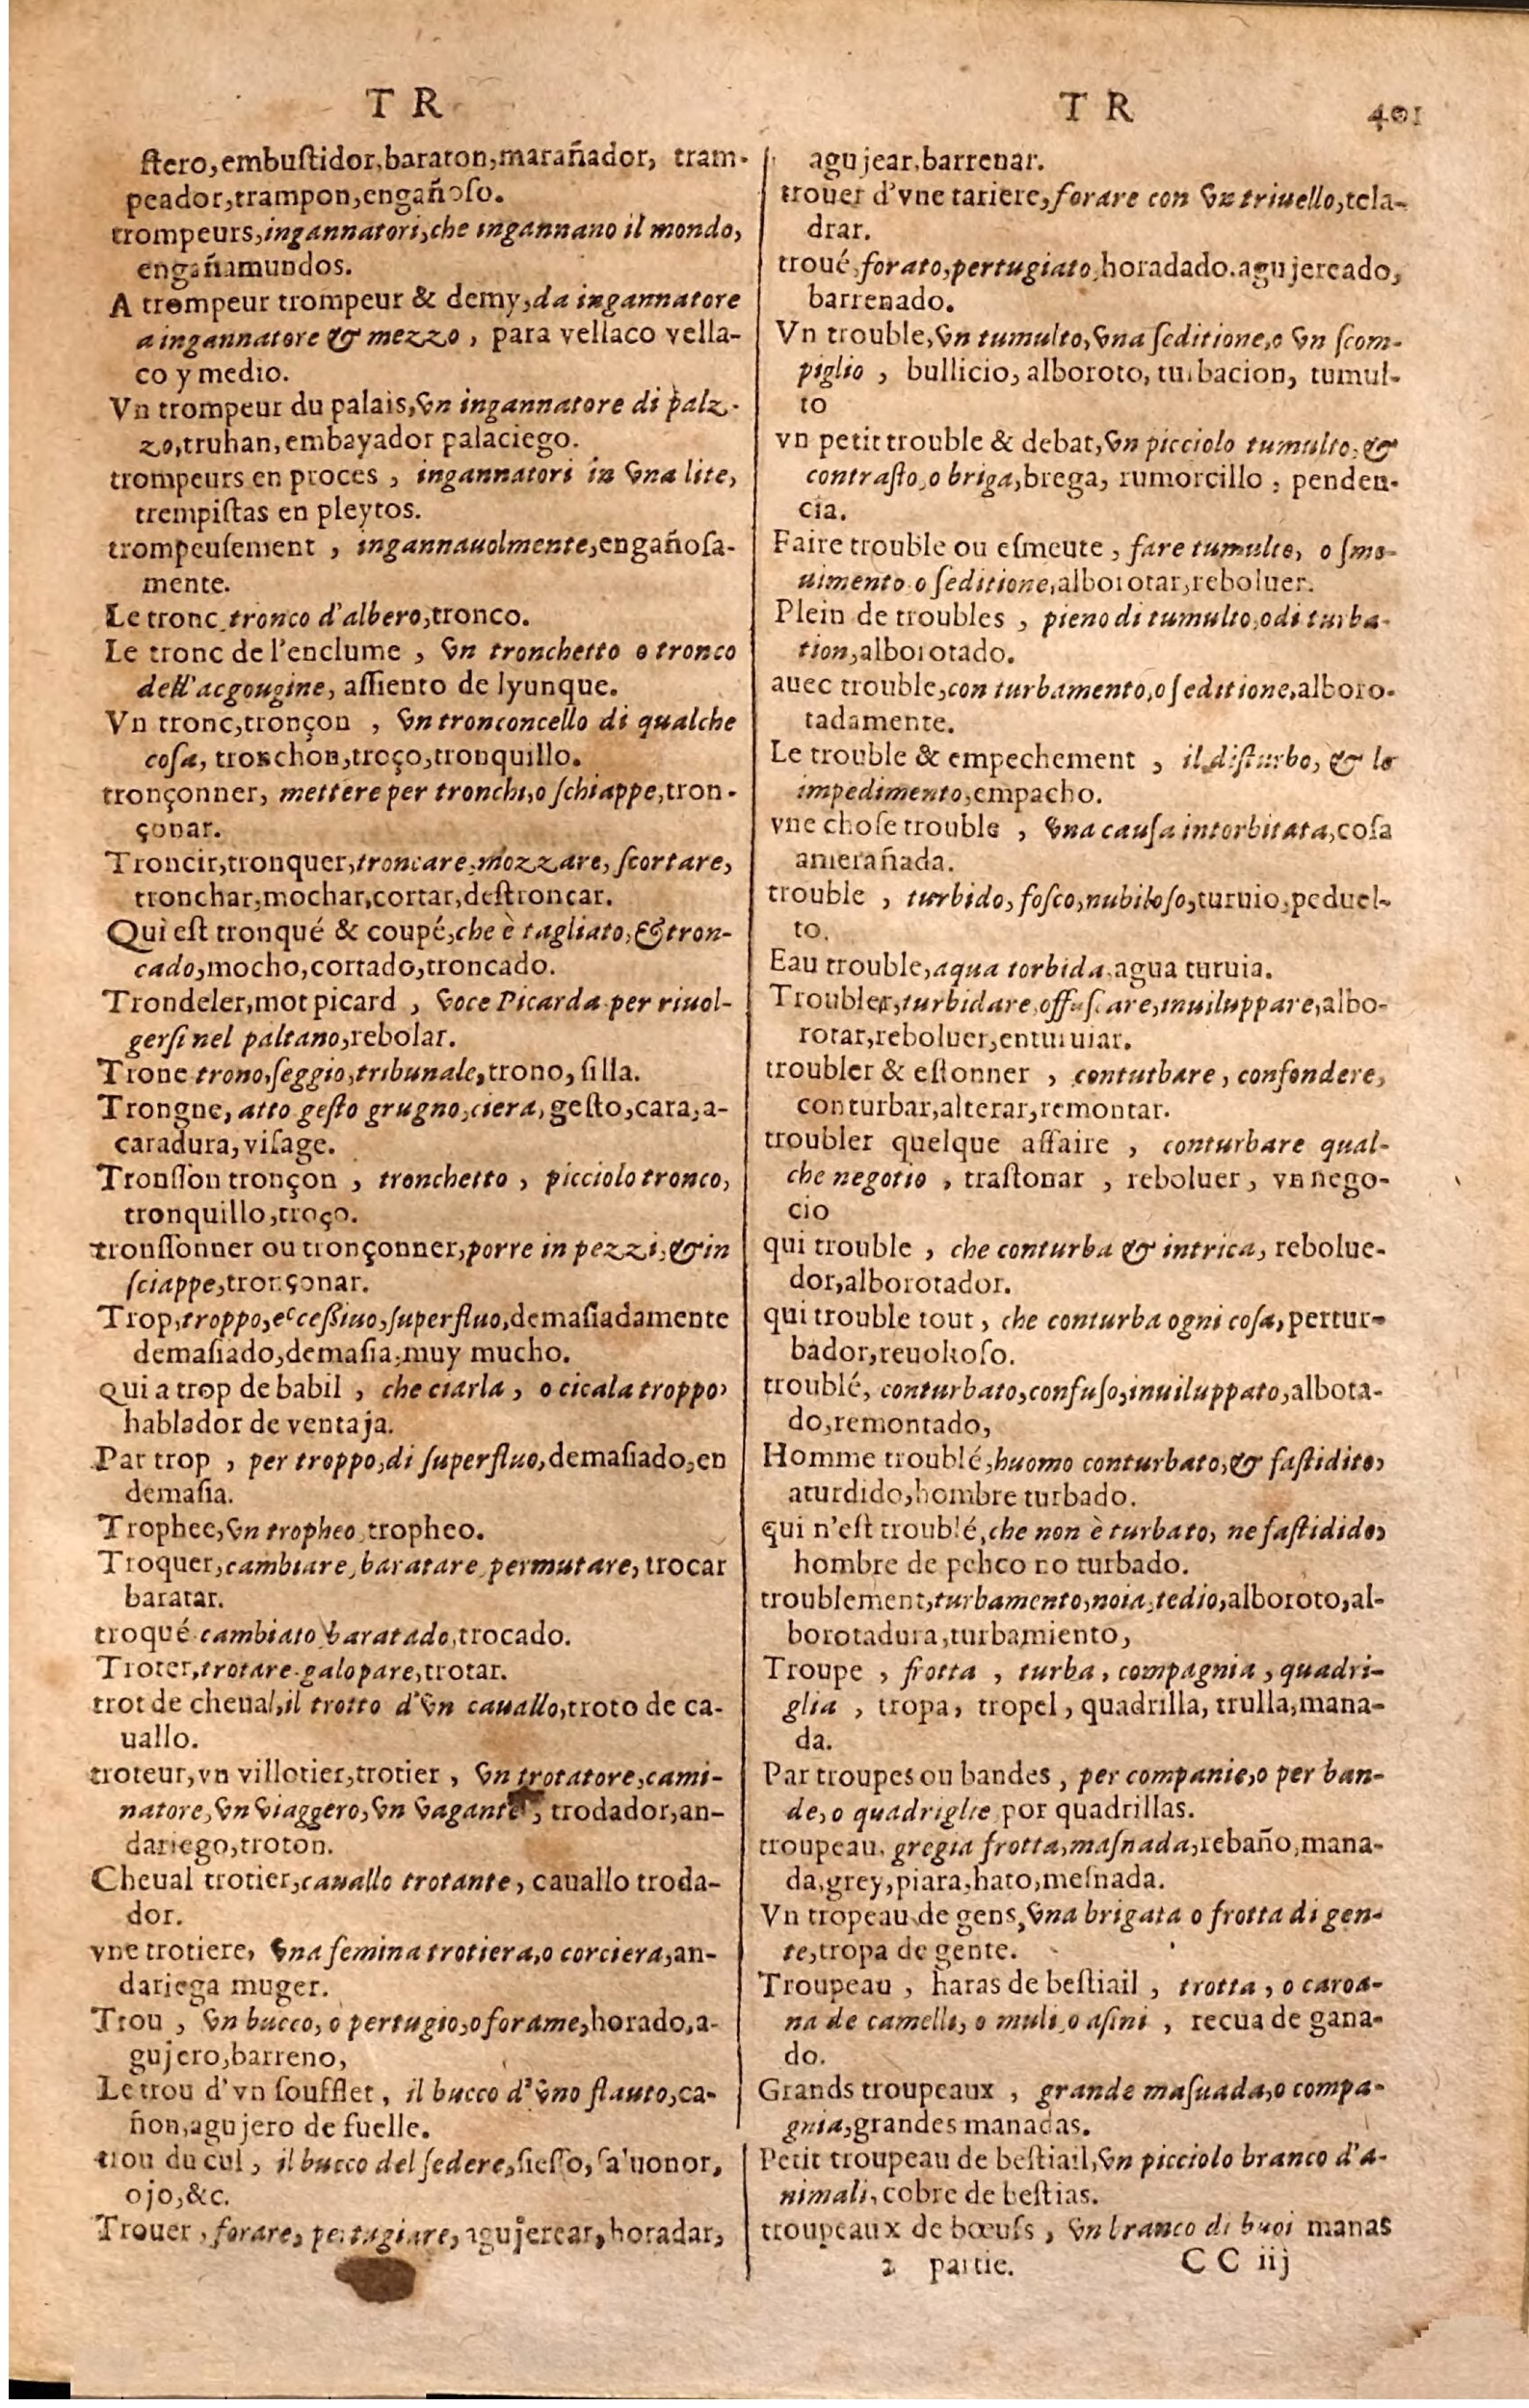 T R
ſtero,embuſtidor,baraton,marañador, tram-
peador,trampon,engañoſo.
trompeurs,ingannatori,che ingannano il mondo,
engañamundos.
A trompeur trompeur & demy,da ingannatore
a ingannatore & mezzo , para vellaco vella-
co y medio.
Vn trompeur du palais,vn ingannatore di palz-
zo,truhan,embayador palaciego.
trompeurs en proces , ingannatori in vna lite,
trempiſtas en pleytos.
trompeuſement , ingannauolmente,engañoſa-
mente.
Le tronc tronco d'albero,tronco.
Le tronc de l'enclume , vn tronchetto o tronco
dell'acgougine, aſſiento de lyunque.
Vn tronc,tronçon , vn tronconcello di qualche
coſa, tronchon,troço,tronquillo.
tronçonner, mettere per tronchi,o ſchiappe,tron-
çonar.
Troncir,tronquer,troncare,mozzare, ſcortare,
tronchar,mochar,cortar,deſtroncar.
Qui eſt tronqué & coupé,che è tagliato,& tron-
cado,mocho,cortado,troncado.
Trondeler,mot picard , voce Picarda per riuol-
gerſi nel paltano,rebolar.
Trone trono,ſeggio,tribunale,trono, ſilla.
Trongne, atto geſto grugno,ciera, geſto,cara,a-
caradura, viſage.
Tronſſon tronçon , tronchetto , picciolo tronco,
tronquillo,troço.
tronſſonner ou tronçonner,porre in pezzi,& in
ſciappe,tronçonar.
Trop,troppo,ecceſſiuo,ſuperfluo,demaſiadamente
demaſiado,demaſia,muy mucho.
Qui a trop de babil , che ciarla , o cicala troppo,
hablador de ventaja.
Par trop , per troppo,di ſuperfluo,demaſiado,en
demaſia.
Trophee,vn tropheo,tropheo.
Troquer,cambiare,baratare,permutare, trocar
baratar.
troqué cambiato baratado,trocado.
Troter,trotare galopare,trotar.
trot de cheual,il trotto d'vn cauallo,troto de ca-
uallo.
troteur,vn villotier,trotier , vn trotatore,cami-
natore,vn viaggero,vn vagante , trodador,an-
dariego,troton.
Cheual trotier,cauallo trotante, cauallo troda-
dor.
vne trotiere, vna femina trotiera,o corciera,an-
dariega muger.
Trou , vn bucco, o pertugio,o forame,horado,a-
gujero,barreno,
Le trou d'vn ſoufflet , il bucco d'vno flauto,ca-
ñon,agujero de fuelle.
trou du cul , il bucco del ſedere,ſieſſo, ſa'uonor,
ojo,&c.
Trouer , forare, pertugiare, agujerear, horadar,
T R 401
agujear,barrenar.
trouer d'vne tariere,forare con vn triuello,tela-
drar.
troué,forato,pertugiato,horadado.agujereado,
barrenado.
Vn trouble,vn tumulto,vna ſeditione,o vn ſcom-
piglio , bullicio, alboroto, turbacion, tumul-
to
vn petit trouble & debat,vn picciolo tumulto,&
contraſto,o briga,brega, rumorcillo , penden-
cia.
Faire trouble ou eſmeute , fare tumulto, o ſmo-
uimento o ſeditione,alborotar,reboluer.
Plein de troubles , pieno di tumulto,o di turba-
tion,alborotado.
auec trouble,con turbamento,o ſeditione,alboro-
tadamente.
Le trouble & empechement , il diſturbo, & lo
impedimento,empacho.
vne choſe trouble , vna cauſa intorbitata,coſa
amerañada.
trouble , turbido, foſco,nubiloſo,turuio,peduel-
to.
Eau trouble,aqua torbida,agua turuia.
Troubler,turbidare,offuſcare,inuiluppare,albo-
rotar,reboluer,enturuiar.
troubler & eſtonner , conturbare , confondere,
conturbar,alterar,remontar.
troubler quelque affaire , conturbare qual-
che negotio , traſtonar , reboluer, vn nego-
cio
qui trouble , che conturba & intrica, rebolue-
dor,alborotador.
qui trouble tout , che conturba ogni coſa,pertur-
bador,reuoltoſo.
troublé, conturbato,confuſo,inuiluppato,albota-
do,remontado,
Homme troublé,huomo conturbato,& faſtidito,
aturdido,hombre turbado.
qui n'eſt troublé,che non è turbato, ne faſtidido,
hombre de pehco no turbado.
troublement,turbamento,noia,tedio,alboroto,al-
borotadura,turbamiento,
Troupe , frotta , turba , compagnia , quadri-
glia , tropa, tropel, quadrilla, trulla,mana-
da.
Par troupes ou bandes , per companie,o per ban-
de,o quadriglie por quadrillas.
troupeau, gregia frotta,maſnada,rebaño,mana-
da,grey,piara,hato,meſnada.
Vn tropeau de gens,vna brigata o frotta di gen-
te,tropa de gente.
Troupeau , haras de beſtiail , trotta , o caroa-
na de camelli, o muli,o aſini , recua de gana-
do.
Grands troupeaux , grande maſuada,o compa-
gnia,grandes manadas.
Petit troupeau de beſtiail,vn picciolo branco d'a-
nimali,cobre de beſtias.
troupeaux de bœufs , vn branco di buoi manas
2 partie. C C iij